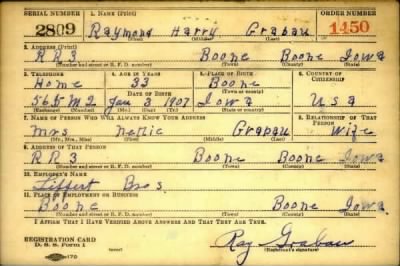 SERIAL NUMBER 1. NAME (Print) ORDER NUMBER
2809 Raymond Harry Grabau 1450
(First) (Middle) (Last)
2. ADDRESS (Print)
R R 3 Boone Boone Iowa
(Number and street or R. F. D. number) (Town) (County) (State)
3. TELEPHONE 4. AGE IN YEARS 5. PLACE OF BIRTH 6. COUNTRY OF CITIZENSHIP
Home 33 Boone
DATE OF BIRTH (Town or county)
56 M2 Jan 3 1907 Iowa Usa
(Exchange) (Number) (Mo.) (Day) (Yr.) (State or country)
7. NAME OF PERSON WHO WILL ALWAYS KNOW YOUR ADDRESS 8. RELATIONSHIP OF THAT PERSON
Mrs Grapau Wife
(Mr., Mrs., Miss) (First) (Middle) (Last)
9. ADDRESS OF THAT PERSON
R R 3 Boone Boone Iowa
(Number and street or R. F. D. number) (Town) (County) (State)
10. EMPLOYER'S NAME
Bros.
11. PLACE OF EMPLOYMENT OR BUSINESS
Boone Boone Iowa
(Number and street or R. F. D. number) (Town) (County) (State)
I AFFIRM THAT I HAVE VERIFIED ABOVE ANSWERS AND THAT THEY ARE TRUE.
REGISTRATION CARD
D. S. S. Form 1 Ray Grabau
(Registrant's signature)